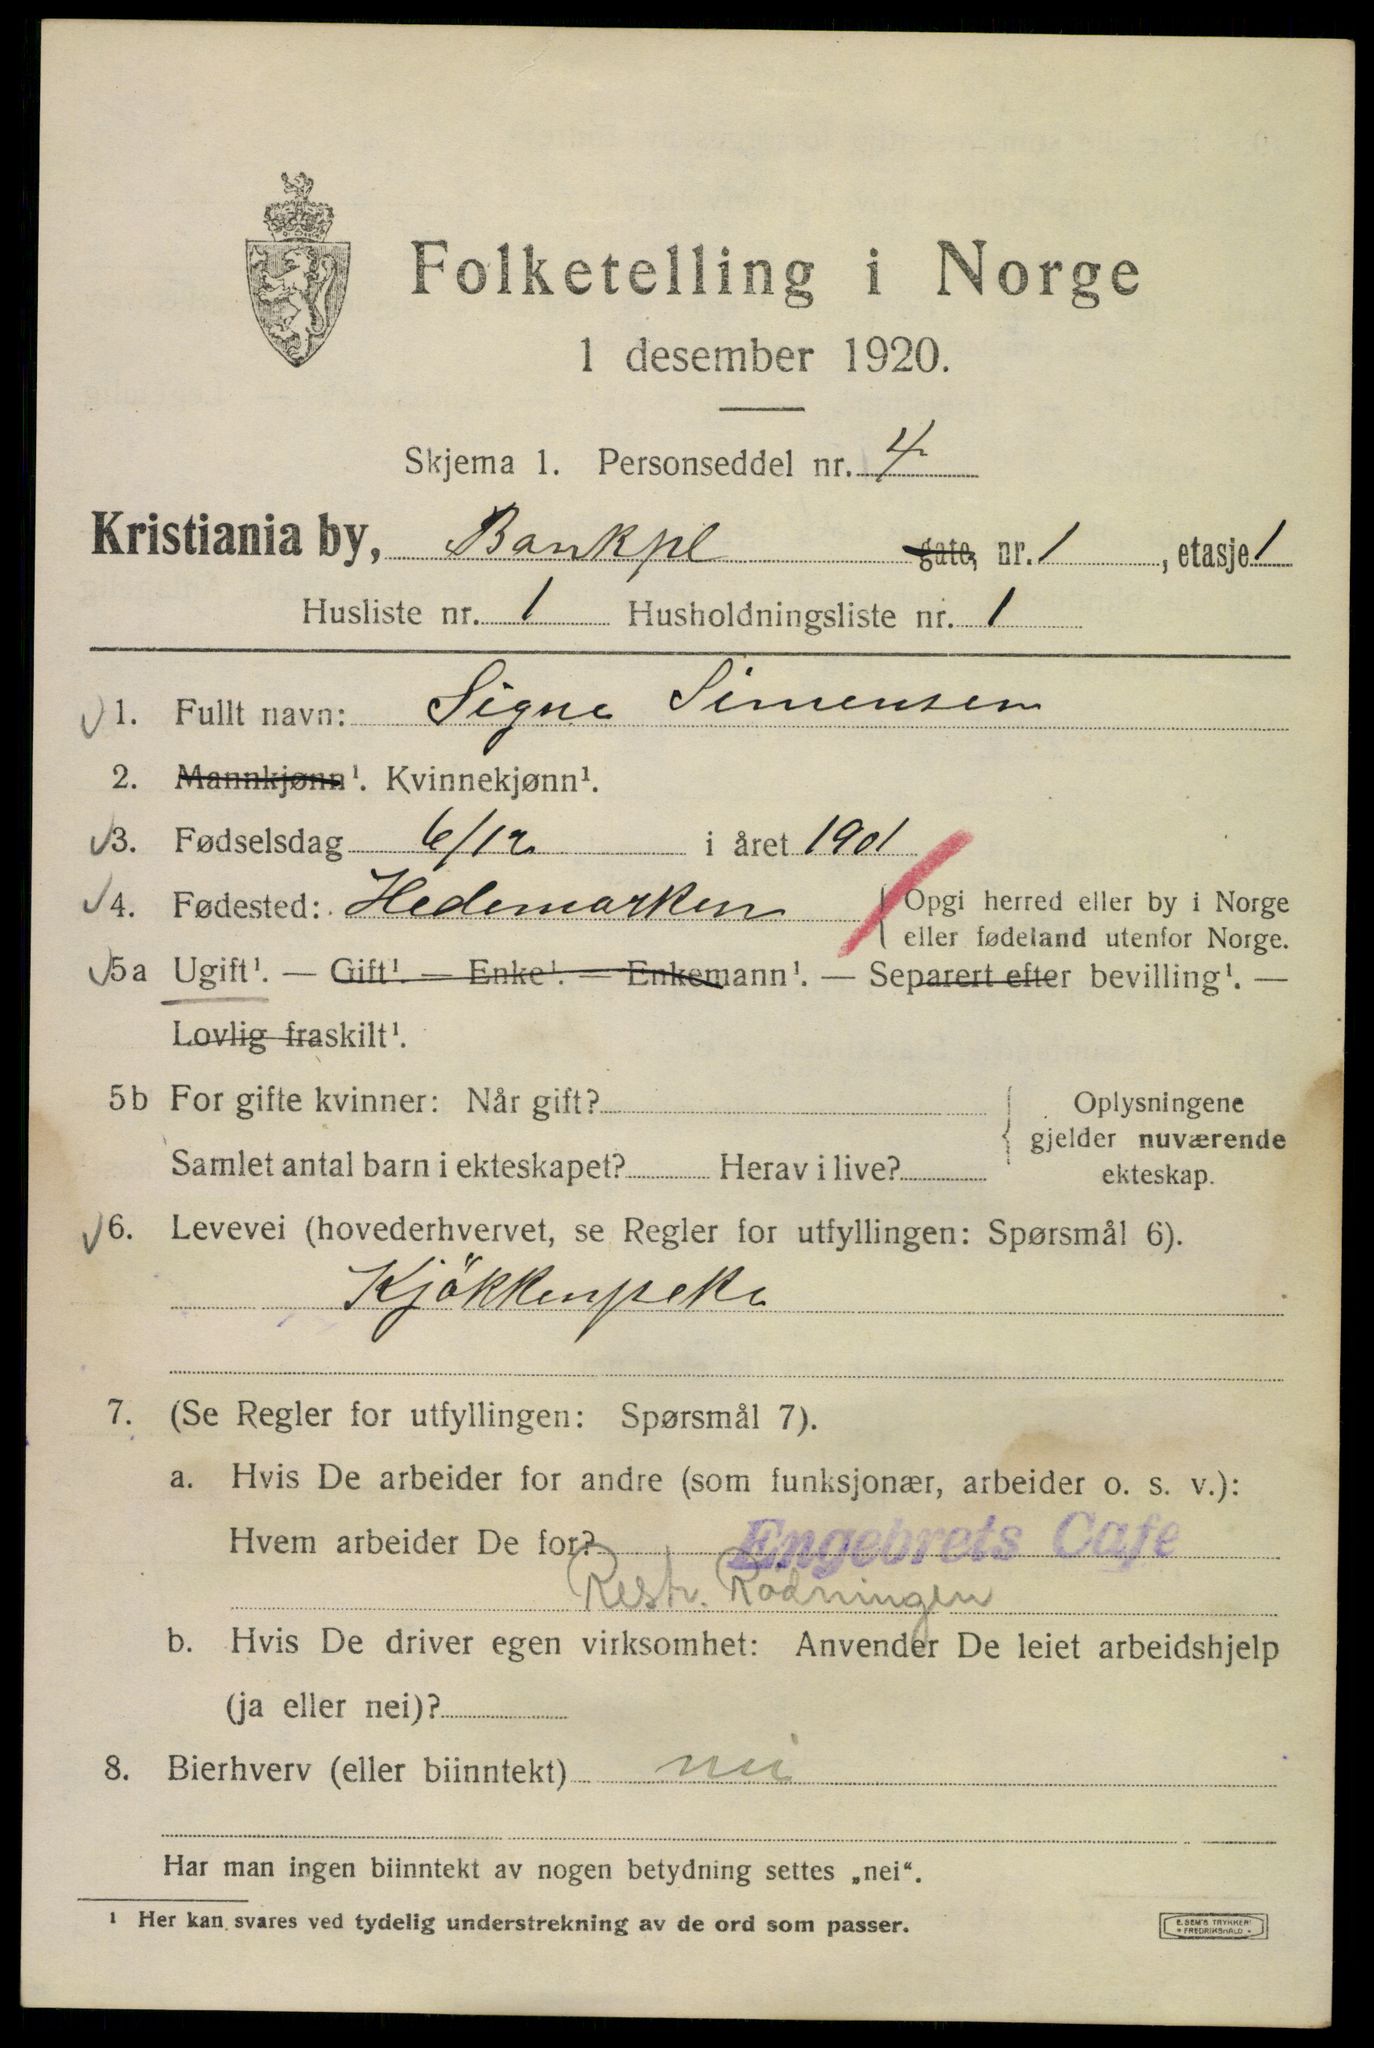 Folketelling i Norge
1 desember 1920.
Skjema 1. Personseddel nr. 4
Kristiania by, Bankpl gate, nr. 1, etasje 1
Husliste nr. 1 Husholdningsliste nr. 1
1. Fullt navn: Signe Simensen
2. Mannkjønn¹. Kvinnekjønn¹.
3. Fødselsdag 6/12 i året 1901
4. Fødested: Hedemarken { Opgi herred eller by i Norge
eller fødeland utenfor Norge.
5a Ugift¹. — Gift¹. — Enke¹. — Enkemann¹. — Separert efter bevilling¹. —
Lovlig fraskilt¹.
5b For gifte kvinner: Når gift? { Oplysningene
gjelder nuværende
Samlet antal barn i ekteskapet? Herav i live? ekteskap.
6. Levevei (hovederhvervet, se Regler for utfyllingen: Spørsmål 6).
Kjökkenpike
7. (Se Regler for utfyllingen: Spørsmål 7).
a. Hvis De arbeider for andre (som funksjonær, arbeider o. s. v.):
Hvem arbeider De for? Engebrets Cafe
Restr. Rodningen
b. Hvis De driver egen virksomhet: Anvender De leiet arbeidshjelp
(ja eller nei)?
8. Bierhverv (eller biinntekt) nei
Har man ingen biinntekt av nogen betydning settes „nei“.
¹ Her kan svares ved tydelig understrekning av de ord som passer.
E. SEM'S TRYKKERI
• FREDRIKSHALD •